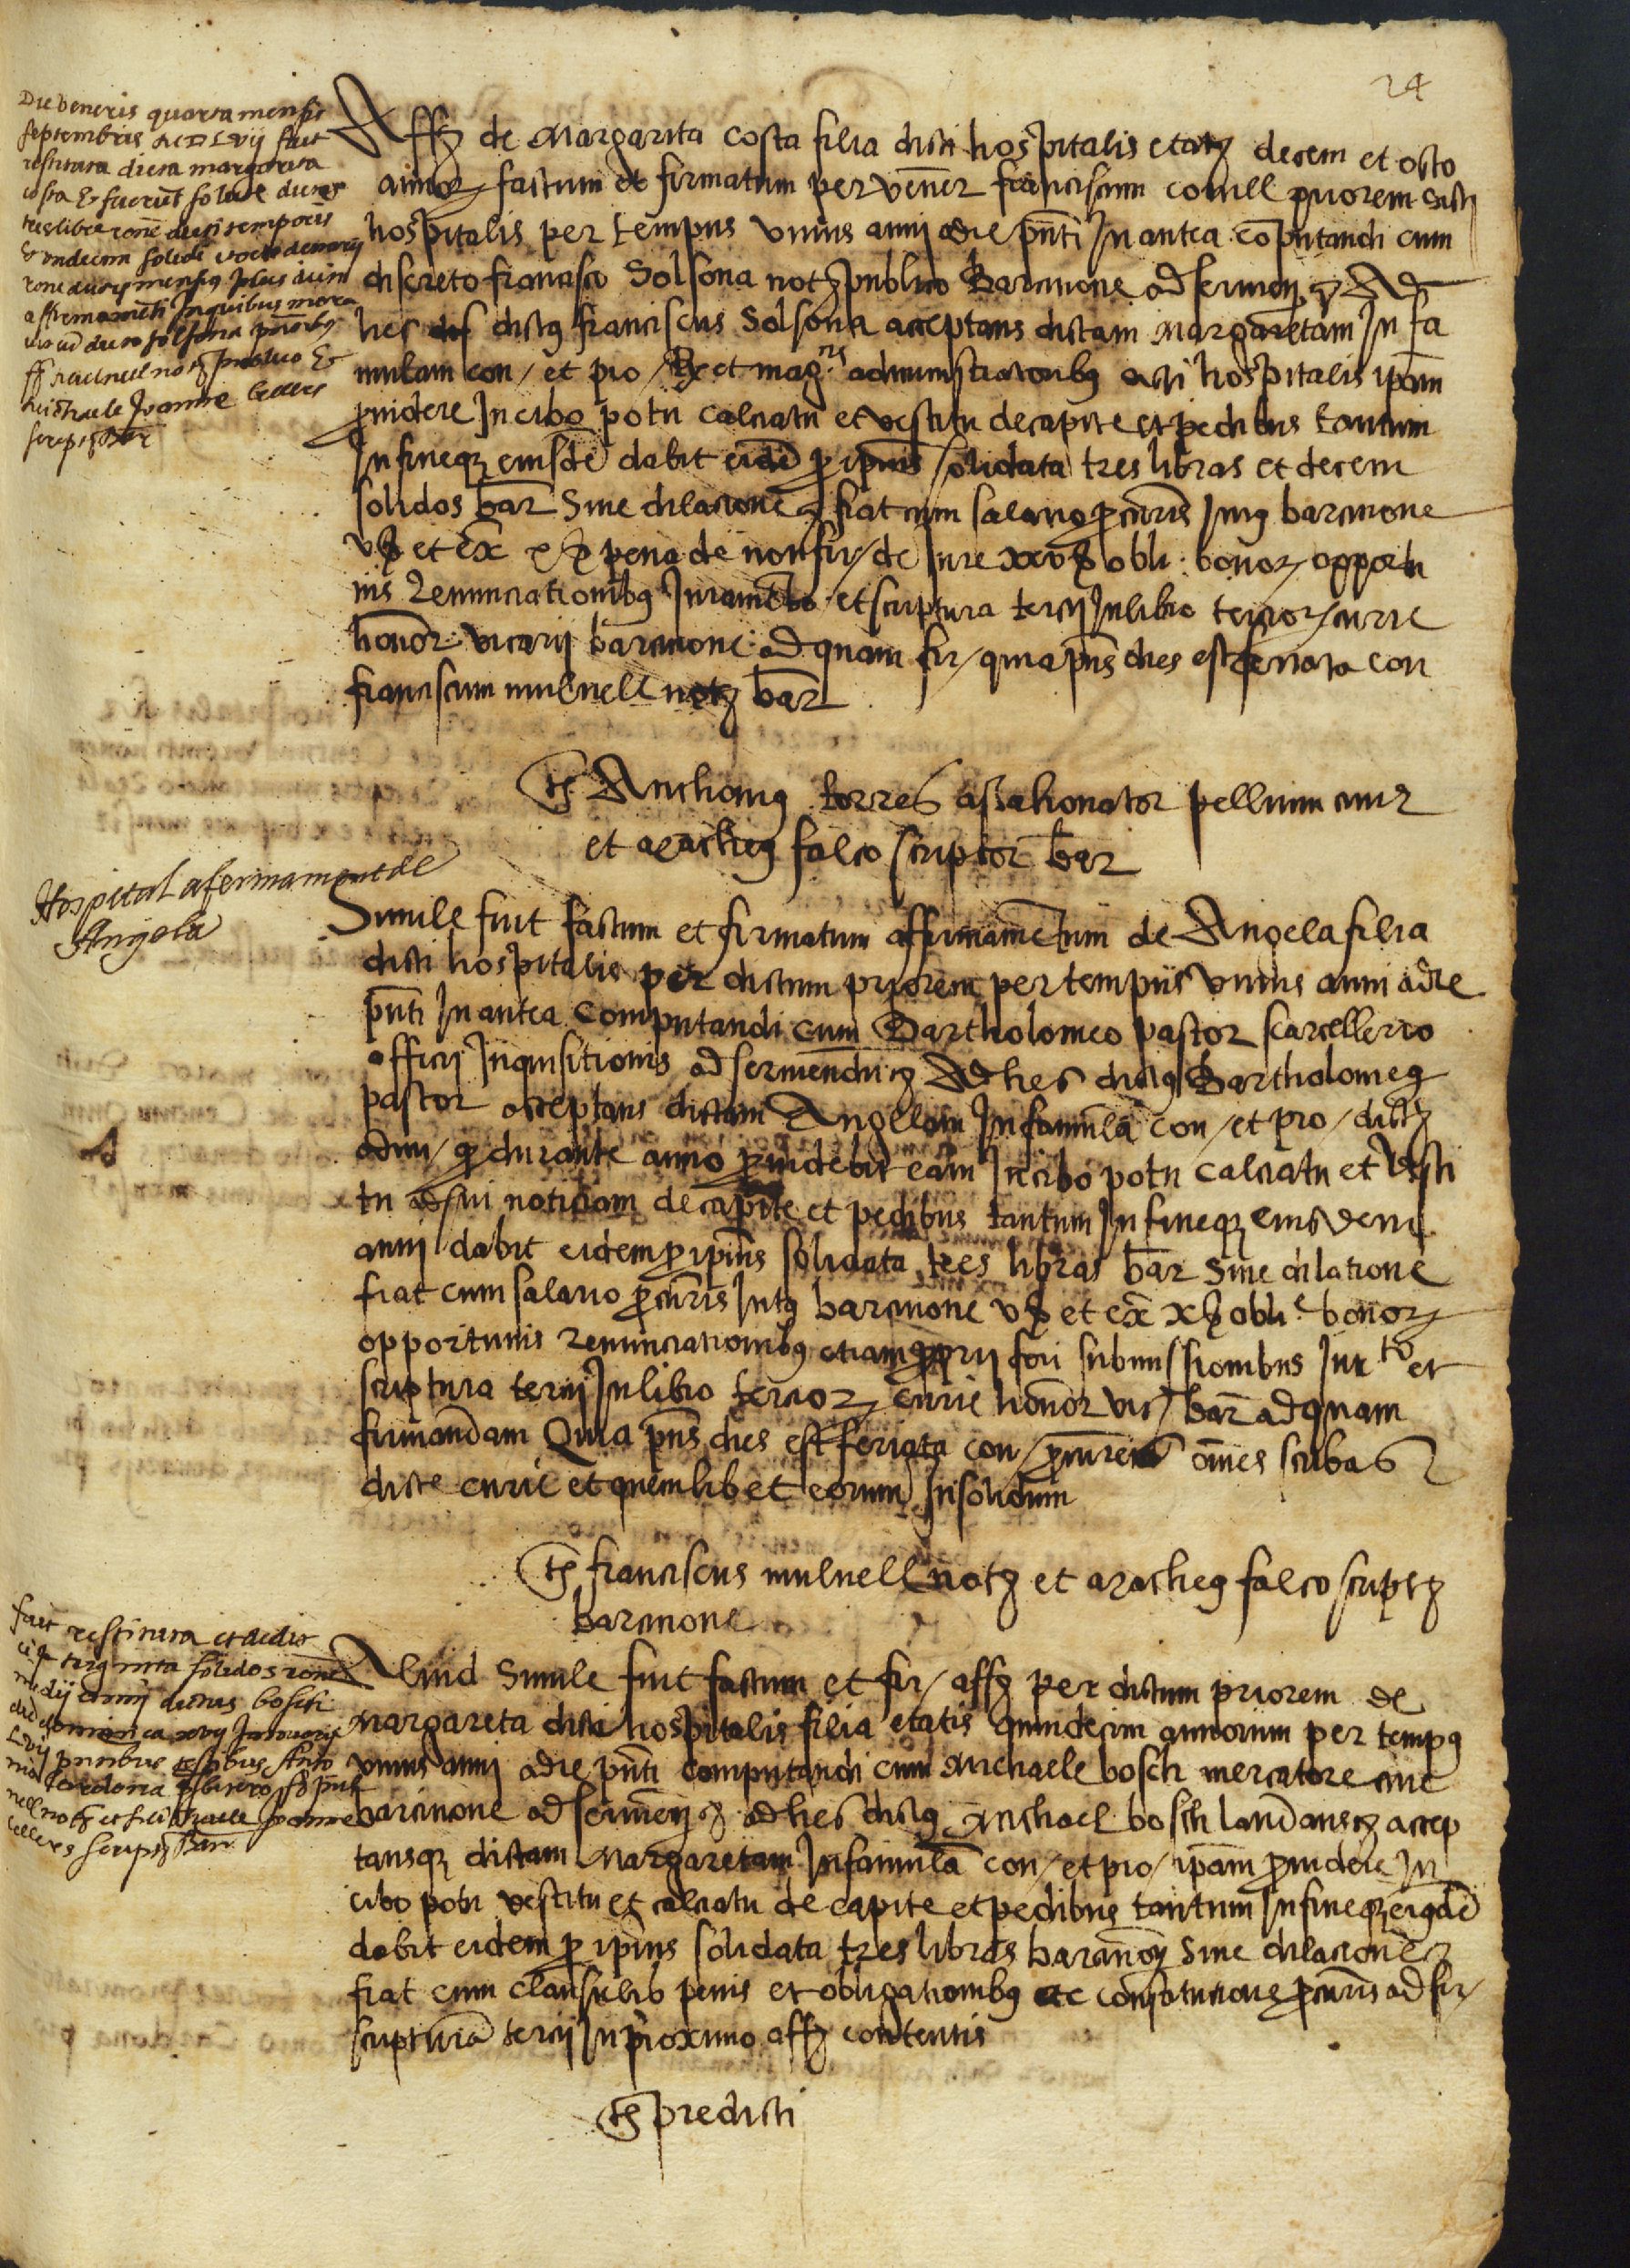 24
Die veneris quarta mensis
septembris MDLvij fuit
restituta dicta margarita
costa & fuerūt solute
tres libre ronē dicti temporis
& undecim solidi
affirmamēti
no[tario] publico &
Michaele Joanne Celleres
Aff̄ de Margarita costa filia dicti hospitalis etatis decem et octo
annor factum et firmatum per vener franciscum comell priorem dicti
hospitalis per tempus unius anni a die pn̄ti In antea cōputandi cum
discreto francisco Solsona not publico Barcinone ad servien Ad
hec dictus franciscus Solsona acceptans dictam Margaretam In fa
mulam con / et pro / et mag.cis administratoribus dicti hospitalis ipam
providere In cibo potu calciatu et vestitu de capite et pedibus tantum
In fineque eiusdē dabit eidē pro ipius solidata tres libras et decem
solidos bar̄ Sine dilacione fiat cum salario procuris Intus barcinone
v s et ex x s pena de non fir / de Jure xxv s obli. bonor opportu
nis Renunciationibus Juramēto et scriptura tercij In libro tercior curie
honor. vicarij barcinone ad quam fir / quia pn̄s dies est feriata con
franciscum mulnell not bar̄
ts Anthonius torres assahonator pellium civis
et Matheus falco scriptor bar̄
Hospital afermament de
Angela
Simile fuit factum et firmatum affirmamētum de Angela filia
dicti hospitalis per dictum priorem per tempus unius anni a die
pn̄ti In antea Computandi cum Bartholomeo pastor scarcellerio
officij Inquisitionis ad serviendū Ad hec dictus Bartholomeus
pastor acceptans dictam Angelam In famulā con / et pro / dictis
adm / q̄ durante anno providebit eam In cibo potu calciatu et vesti
tu ad sui noticiam de capite et pedibus tantum In fineque eiusdem
anni dabit eidem pro ipius solidata tres libras bar̄ Sine dilatione
fiat cum salario procuris Intus barcinone v s et ex x s obli. bonor
opportunis renunciationibus etiam proprij fori submissionibus Jur.to et
scriptura tercij In libro tercior curie honor vic / bar̄ ad quam
firmandam Quia pn̄s dies est feriata con / procures omēs scribas
dicte curie et quemlibet eorum Insolidum
ts franciscus mulnell not et Matheus falco script
barcinone
fuit restituta et dedit
triginta solidos ronē
medij anni dictus bosch
die dominica xvij Januarij
Lvij pn̄tibus testibus Anto
nio Cardona
nell not et Michaele Joanne
Celleres script Bar
Aliud Simile fuit factum et fir / aff̄ per dictum priorem de
Margareta dicti hospitalis filia etatis quindecim annorum per tempus
unius anni a die pn̄ti computandi cum Michaele bosch mercatore cive
barcinone ad servien ad hec dictus Michael bosch laudans accep
tansque dictam Margaretam In famulā con / et pro / ipam providere In
cibo potu vestitu et calciatu de capite et pedibus tantum In fineque eiusdē
dabit eidem pro ipius solidata tres libras barcinon Sine dilacione
fiat cum clausulis penis et obligationibus ac constitutione procuris ad fir /
scripturā tercij In proximo aff̄ contentis
ts predicti